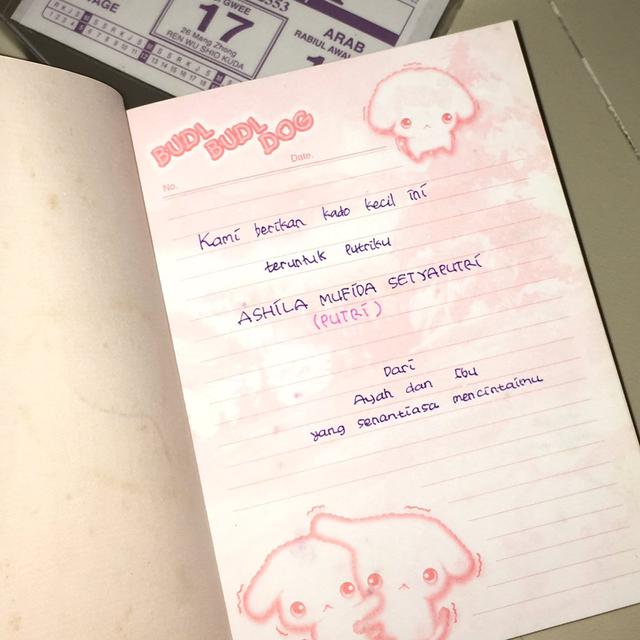 GWEE
353
AGE
17
26 Mang Zhong
REN WU SHIO KUDA
ARAB
RABIUL AWA
BUDL BUDL DOG
No.
Date.
Kami berikan kado kecil ini
teruntuk Putriku
ASHILA MUFIDA SETYAPUTRI
(PUTRI)
Dari
Ayah dan Ibu
yang senantiasa mencintaimu